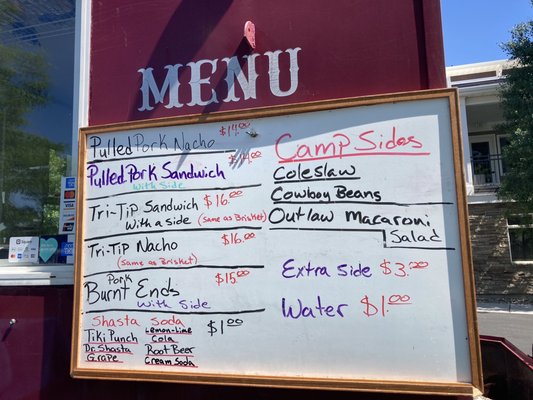 MENU
Pulled Pork Nacho $14.00
Pulled Pork Sandwich $14.00
with Side
Tri-Tip Sandwich $16.00
with a side (same as Brisket)
Tri-Tip Nacho $16.00
(same as Brisket)
Pork
Burnt Ends $15.00
with Side
Shasta Soda $1.00
Tiki Punch
Dr. Shasta
Grape
Lemon-Lime
Cola
Root Beer
Cream Soda
Camp Sides
Coleslaw
Cowboy Beans
Outlaw Macaroni
Salad
Extra Side $3.00
Water $1.00